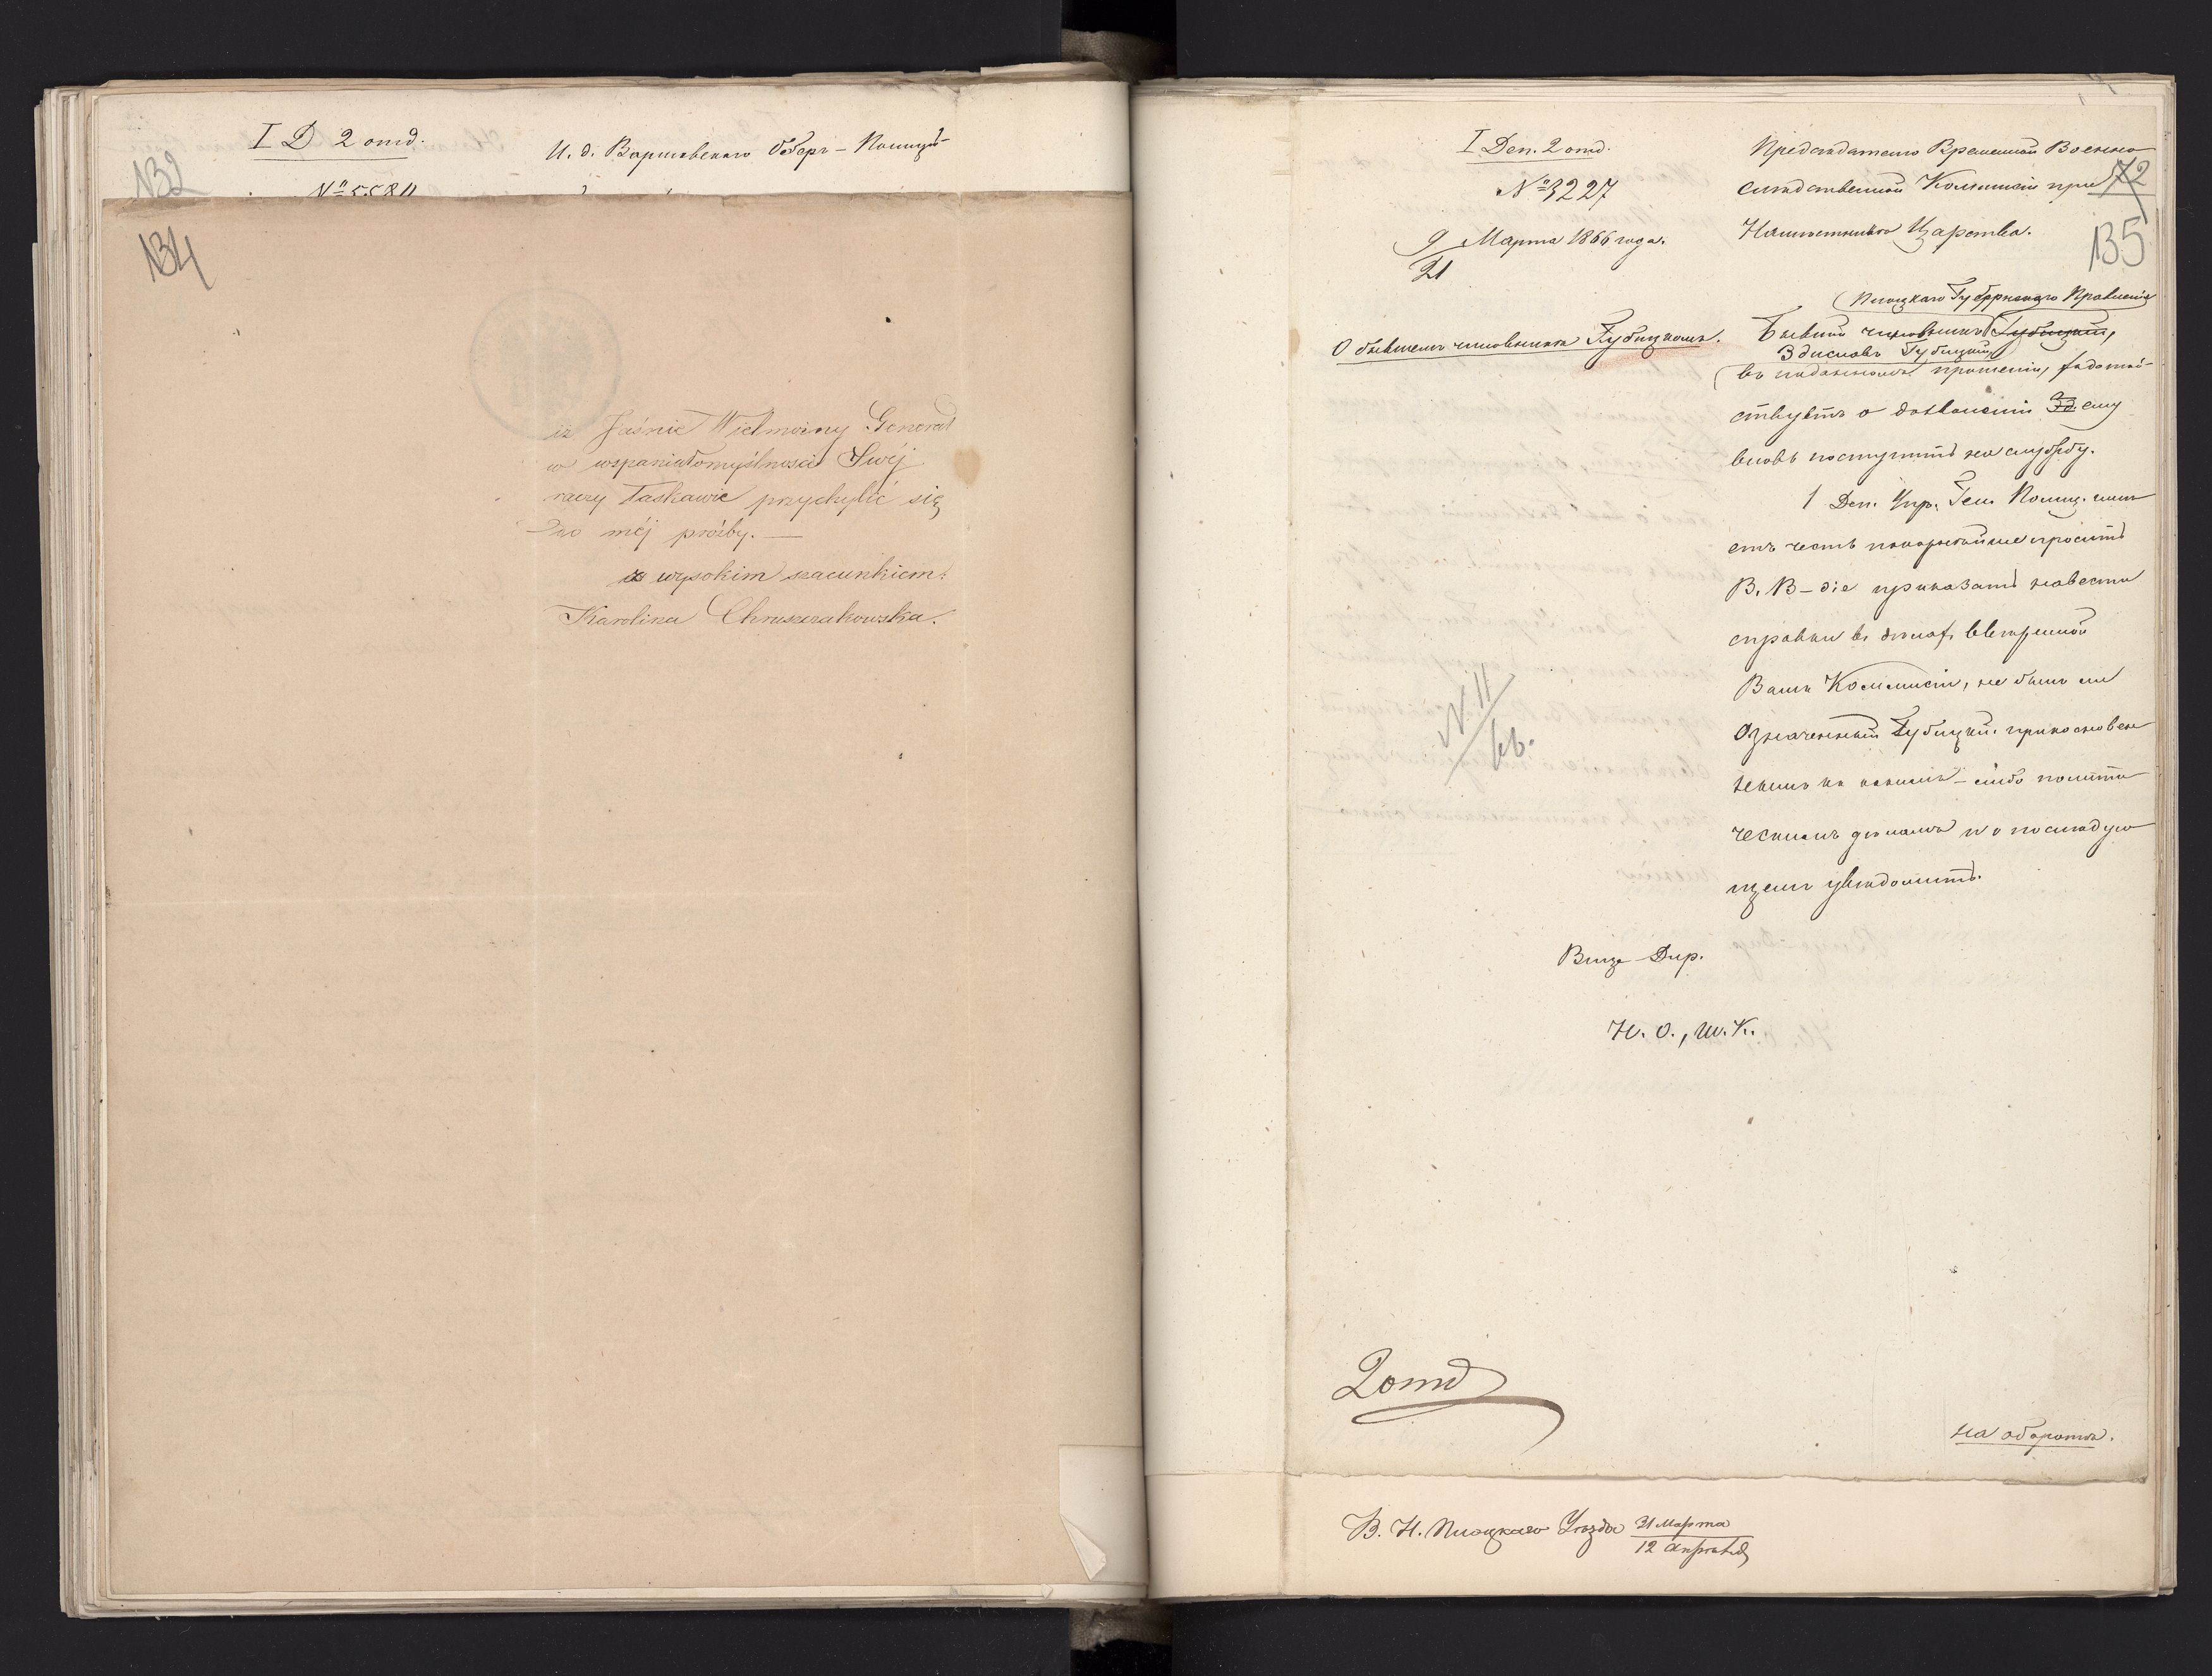 132
I D 2 отд.
И. д. Варшавскаго Оберъ-Полицій-
№ 5584
134
iż Jaśnie Wielmożny Generał
w wspaniałomyślności Swéj
raczy łaskawie przychylić się
do méj prośby. —
z wysokim szacunkiem:
Karolina Chruszczakowska.
I Деп. 2 отд.
№ 3227
9/21 Марта 1866 года.
О бывшемъ чиновникѣ Губицкомъ.
N. 11/66.
Предсѣдателю Временной Военно-
слѣдственной Коммисіи при
72
Намѣстникѣ Царства.
135
Плоцкаго Губернскаго Правленія
Бывшій чиновникъ Губицкій,
Здиславъ Губицкій
въ поданномъ прошеніи, ходатай-
ствуетъ о дозволеніи ему
вновь поступить на службу.
1 Деп. Упр. Ген. Полиц. имѣ
етъ честь покорнѣйше просить
В. В-діе приказать навести
справки въ дѣлахъ ввѣренной
Вамъ Коммисіи, не былъ ли
означенный Губицкій прикосновен
нымъ къ какимъ-либо полити
ческимъ дѣламъ и о послѣдую
щемъ увѣдомить.
Вице-Дир.
Н. О., Ш. К.
2 отд
на оборотѣ.
В. Н. Плоцкаго Уѣзда 31 Марта
12 Апрѣля